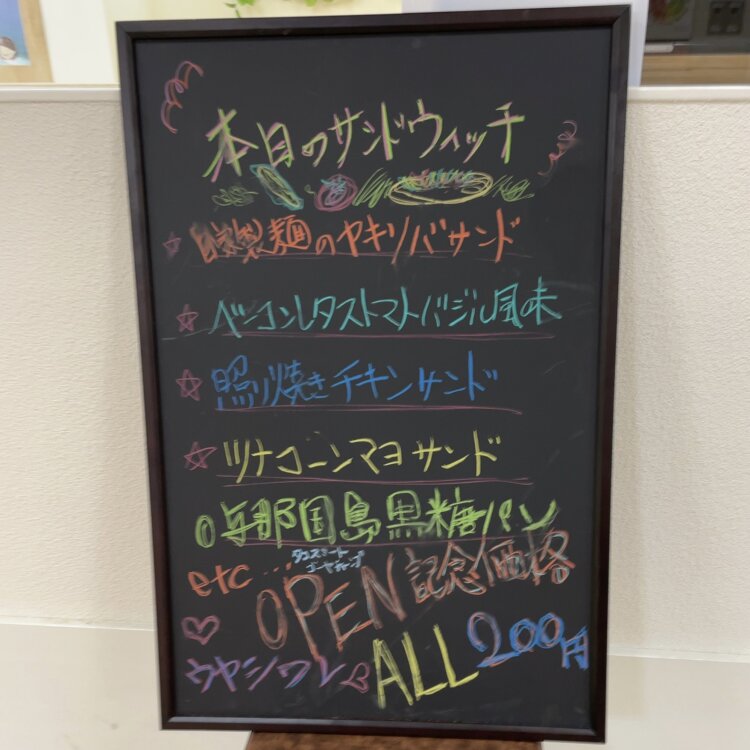 本日のサンドウィッチ
☆ 自家製麺のヤキソバサンド
☆ ベーコンレタストマトバジル風味
☆ 照り焼きチキンサンド
☆ ツナコーンマヨサンド
○与那国島黒糖パン
etc...
タコスミート
ゴーヤチャンプ
OPEN記念価格
ウヤシワレ
ALL 200円